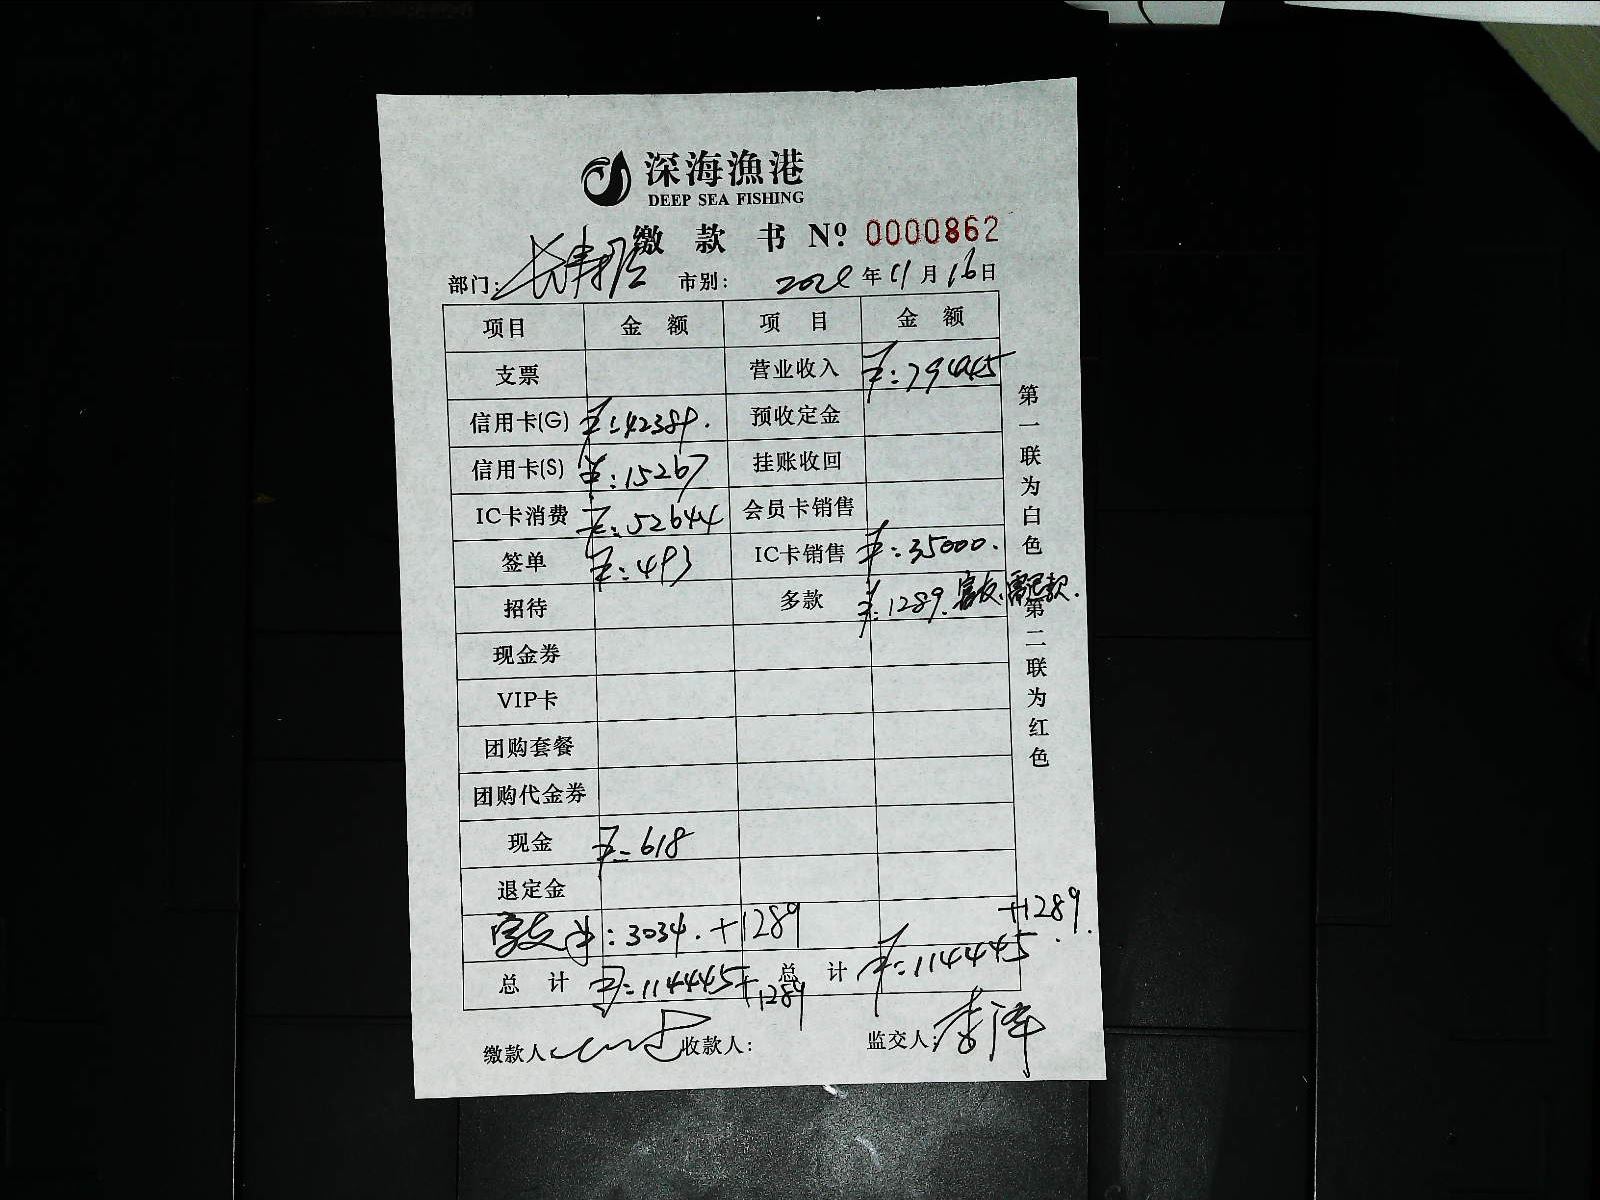 深海漁港
DEEP SEA FISHING
缴 款 书 Nº. 0000862
部门: 市别: 年 11 月 16 日
项目 金 额 项 目 金 额
支票 营业收入 ¥:79445
信用卡(G) ¥:42389. 预收定金
信用卡(S) ¥:15267 挂账收回
IC卡消费 ¥:52644 会员卡销售
签单 ¥:493 IC卡销售 ¥:35000.
招待 多款 ¥:1289. 富友,需退款.
现金券
VIP卡
团购套餐
团购代金券
现金 ¥:618
退定金
富友 ¥:3034.+1289 +1289.
总 计 ¥:114445+1289 总 计 ¥:114445
缴款人: 收款人: 监交人:
第一联为白色 第二联为红色